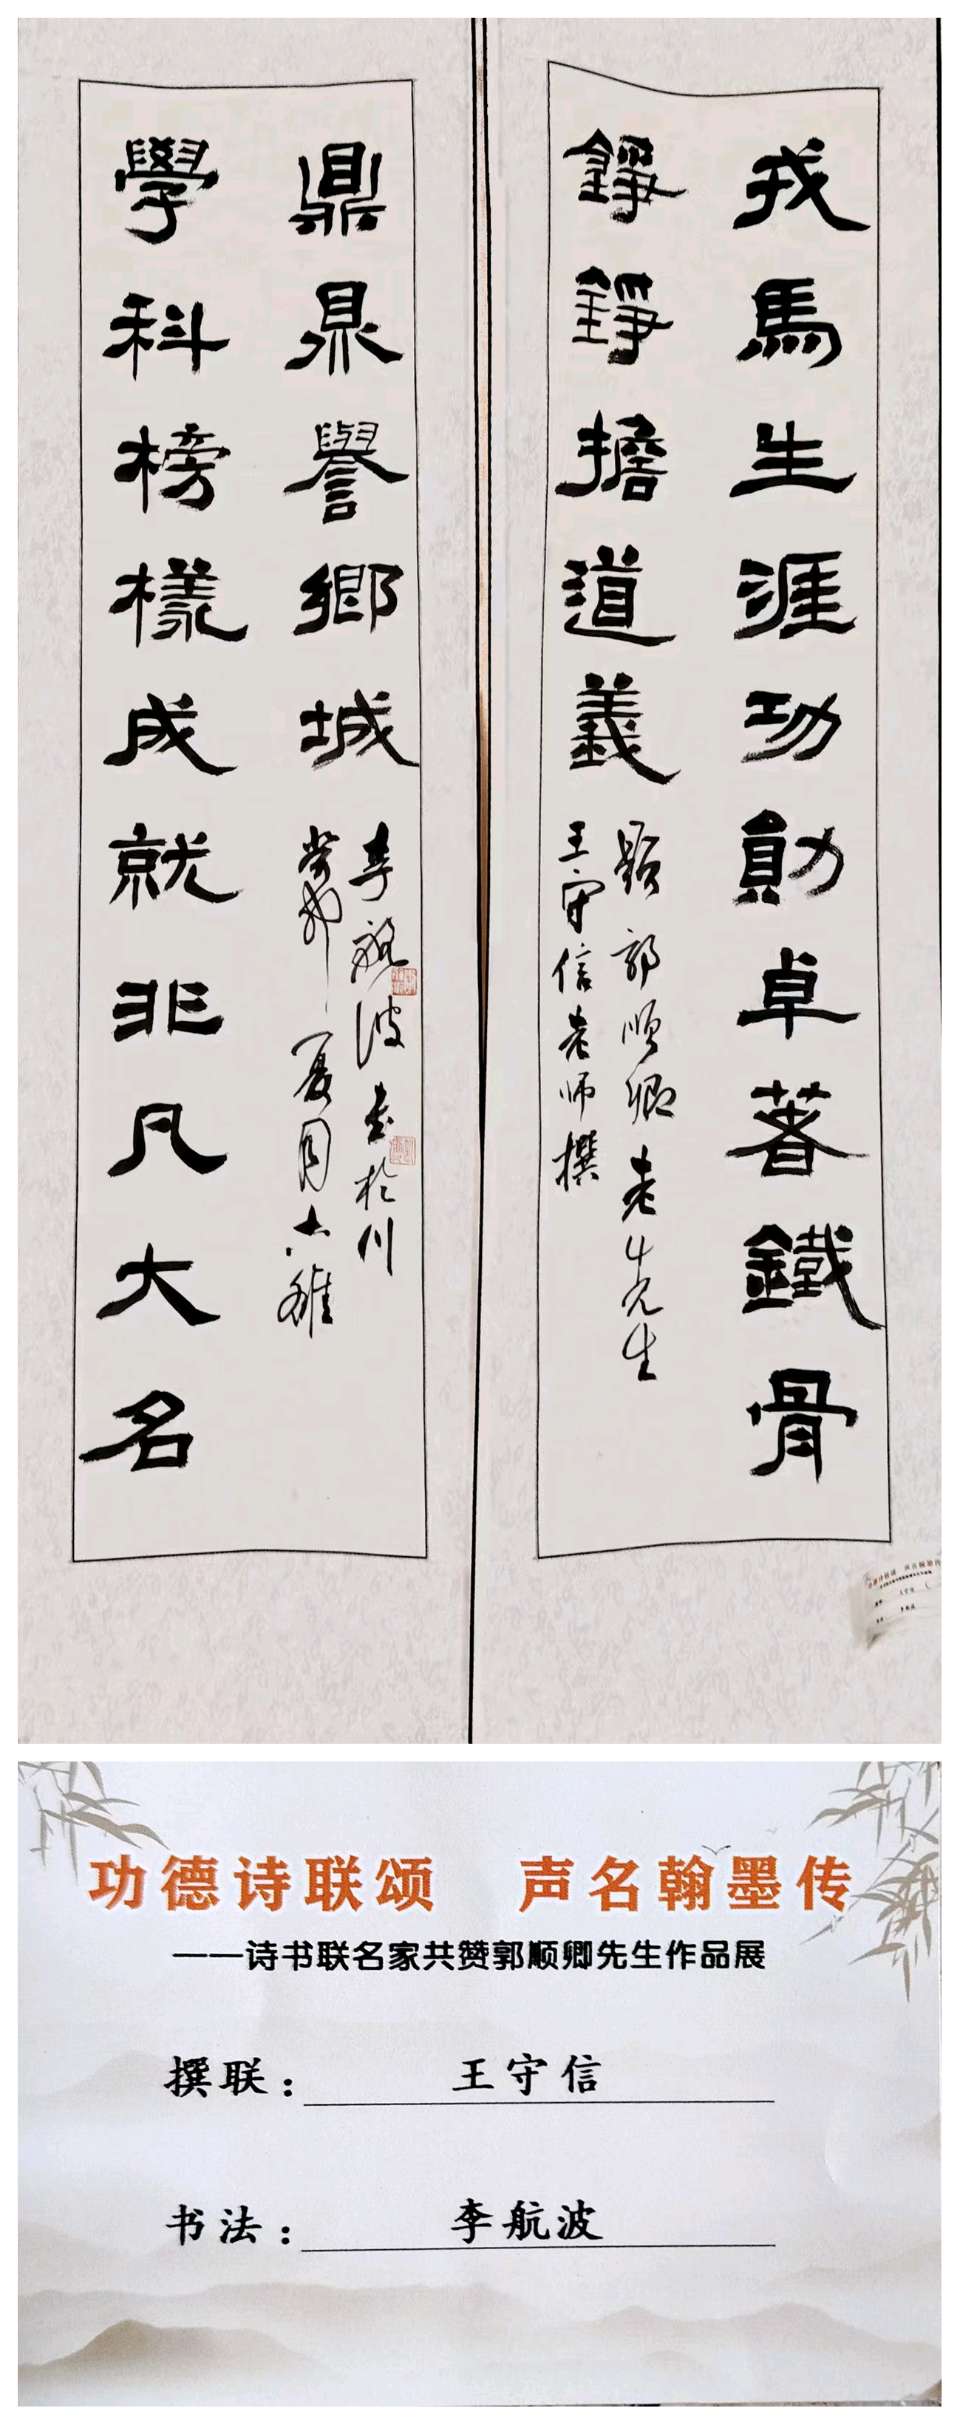 戎馬生涯功勛卓著鐵骨
錚錚擔道義
題郭順卿老先生
王守信老師撰
學科榜樣成就非凡大名
鼎鼎譽鄉城
癸卯夏月六雄
李航波書於川
功德诗联颂 声名翰墨传
——诗书联名家共赞郭顺卿先生作品展
撰联：王守信
书法：李航波